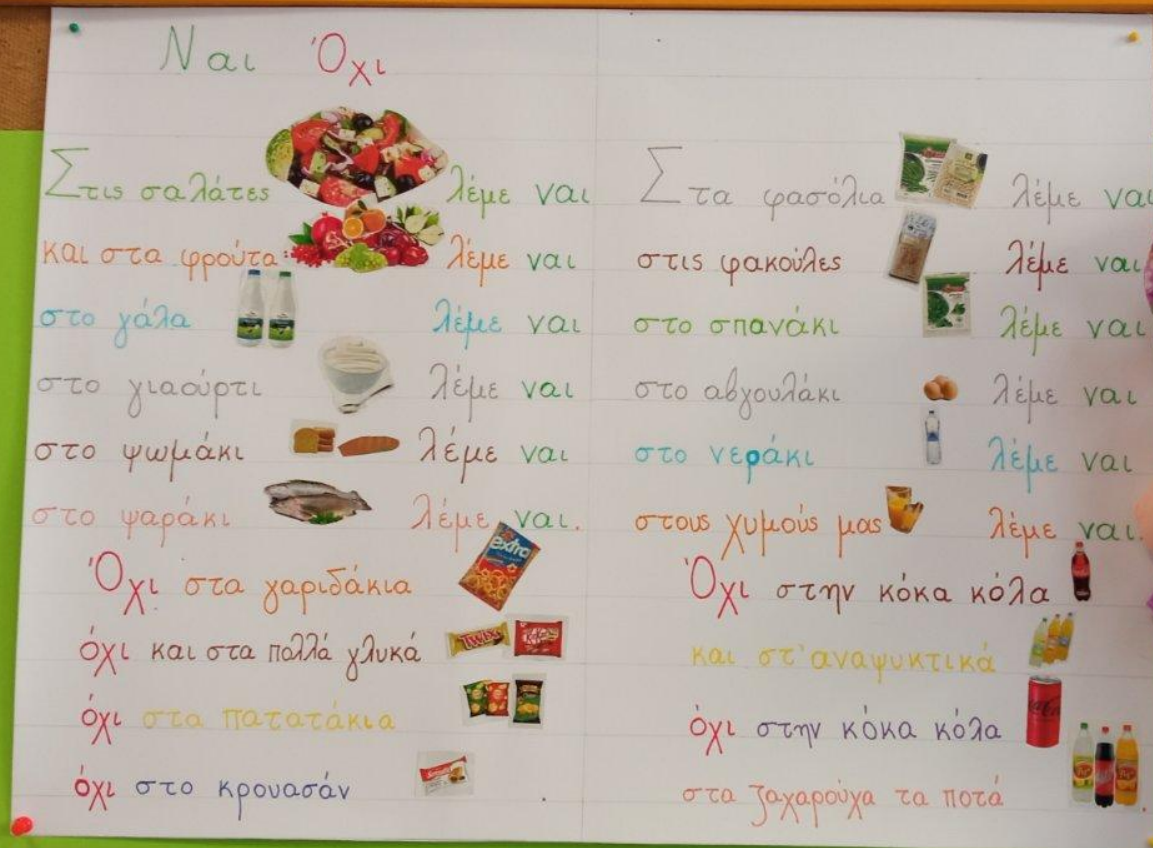 Ναι Όχι
Στις σαλάτες λέμε ναι
και στα φρούτα λέμε ναι
στο γάλα λέμε ναι
στο γιαούρτι λέμε ναι
στο ψωμάκι λέμε ναι
στο ψαράκι λέμε ναι.
Όχι στα γαριδάκια
extra
όχι και στα πολλά γλυκά
Twix KitKat
όχι στα πατατάκια
όχι στο κρουασάν
Στα φασόλια λέμε ναι
στις φακούλες λέμε ναι
στο σπανάκι λέμε ναι
στο αβγουλάκι λέμε ναι
στο νεράκι λέμε ναι
στους χυμούς μας λέμε ναι.
Όχι στην κόκα κόλα
και στ' αναψυκτικά
όχι στην κόκα κόλα
στα ζαχαρούχα τα ποτά